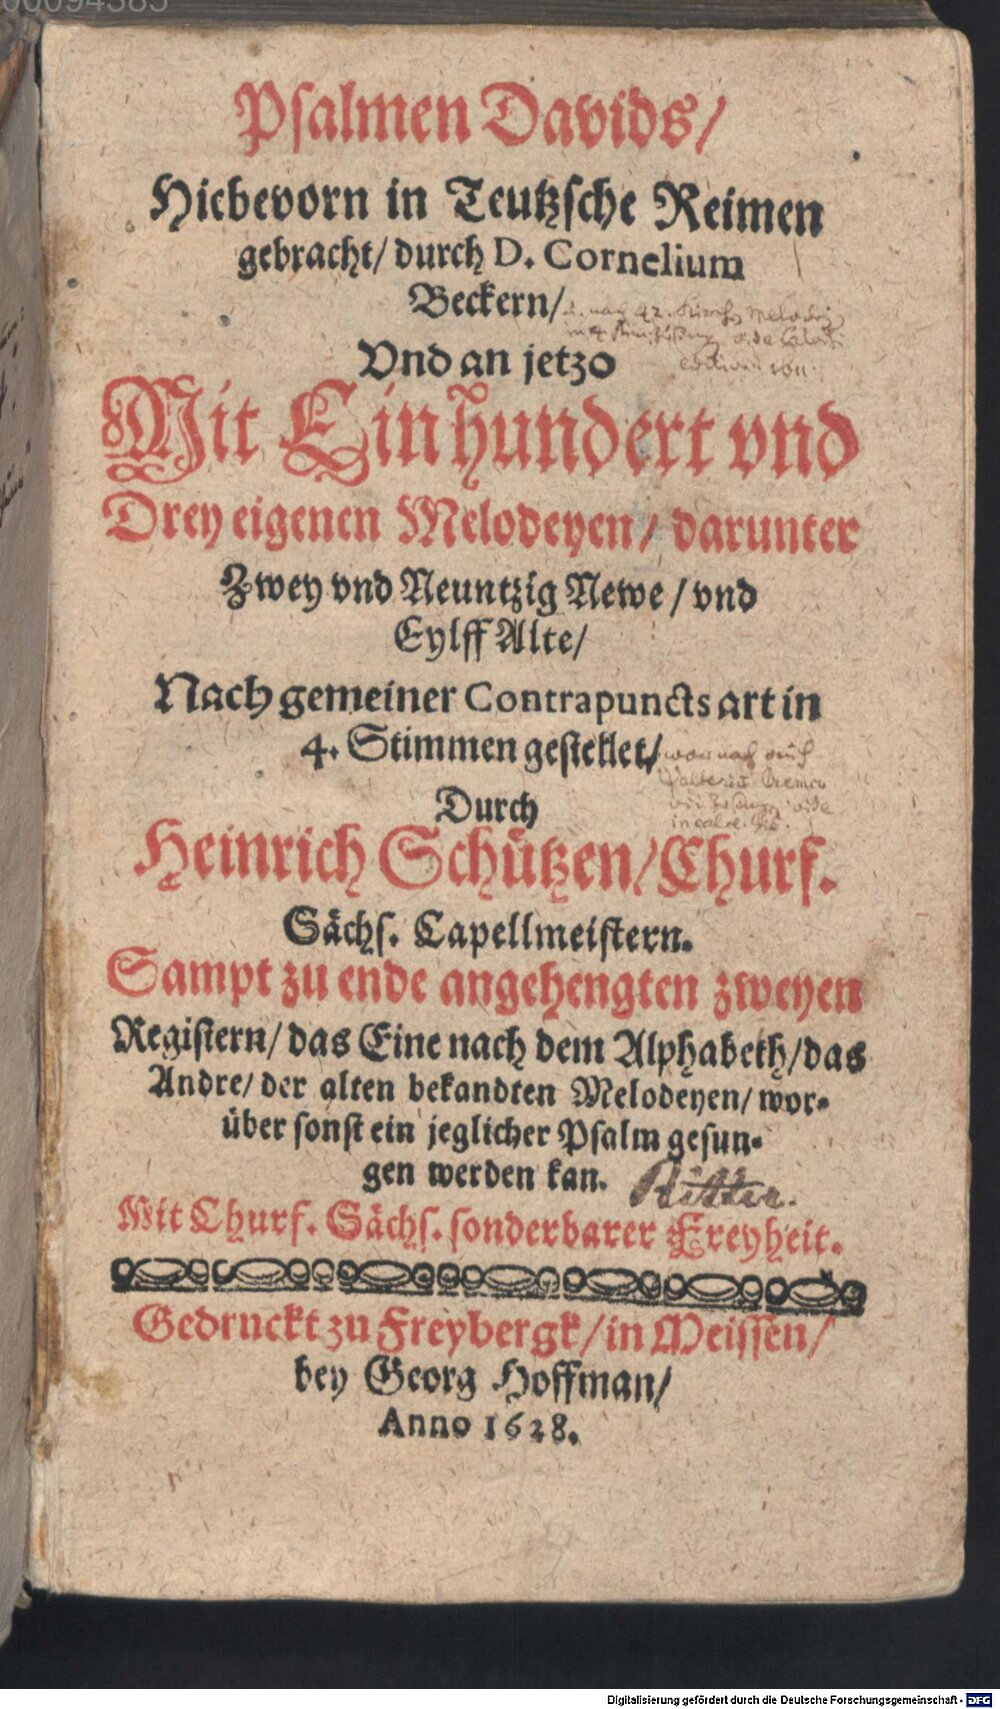 00094385
Psalmen Davids/
Hiebevorn in Teutzsche Reimen
gebracht/ durch D. Cornelium
Beckern/
Vnd an jetzo
Mit Einhundert vnd
Drey eigenen Melodeyen/ darunter
Zwey vnd Neuntzig Newe/ vnd
Eylff Alte/
Nach gemeiner Contrapuncts art in
4. Stimmen gestellet/
Durch
Heinrich Schützen/ Churf.
Sächs. Capellmeistern.
Sampt zu ende angehengten zweyen
Registern/ das Eine nach dem Alphabeth/ das
Andre/ der alten bekandten Melodeyen/ wor-
über sonst ein jeglicher Psalm gesun-
gen werden kan.
Ritter.
Mit Churf. Sächs. sonderbarer Freyheit.
Gedruckt zu Freybergk/ in Meissen/
bey Georg Hoffman/
Anno 1628.
Digitalisierung gefördert durch die Deutsche Forschungsgemeinschaft - DFG